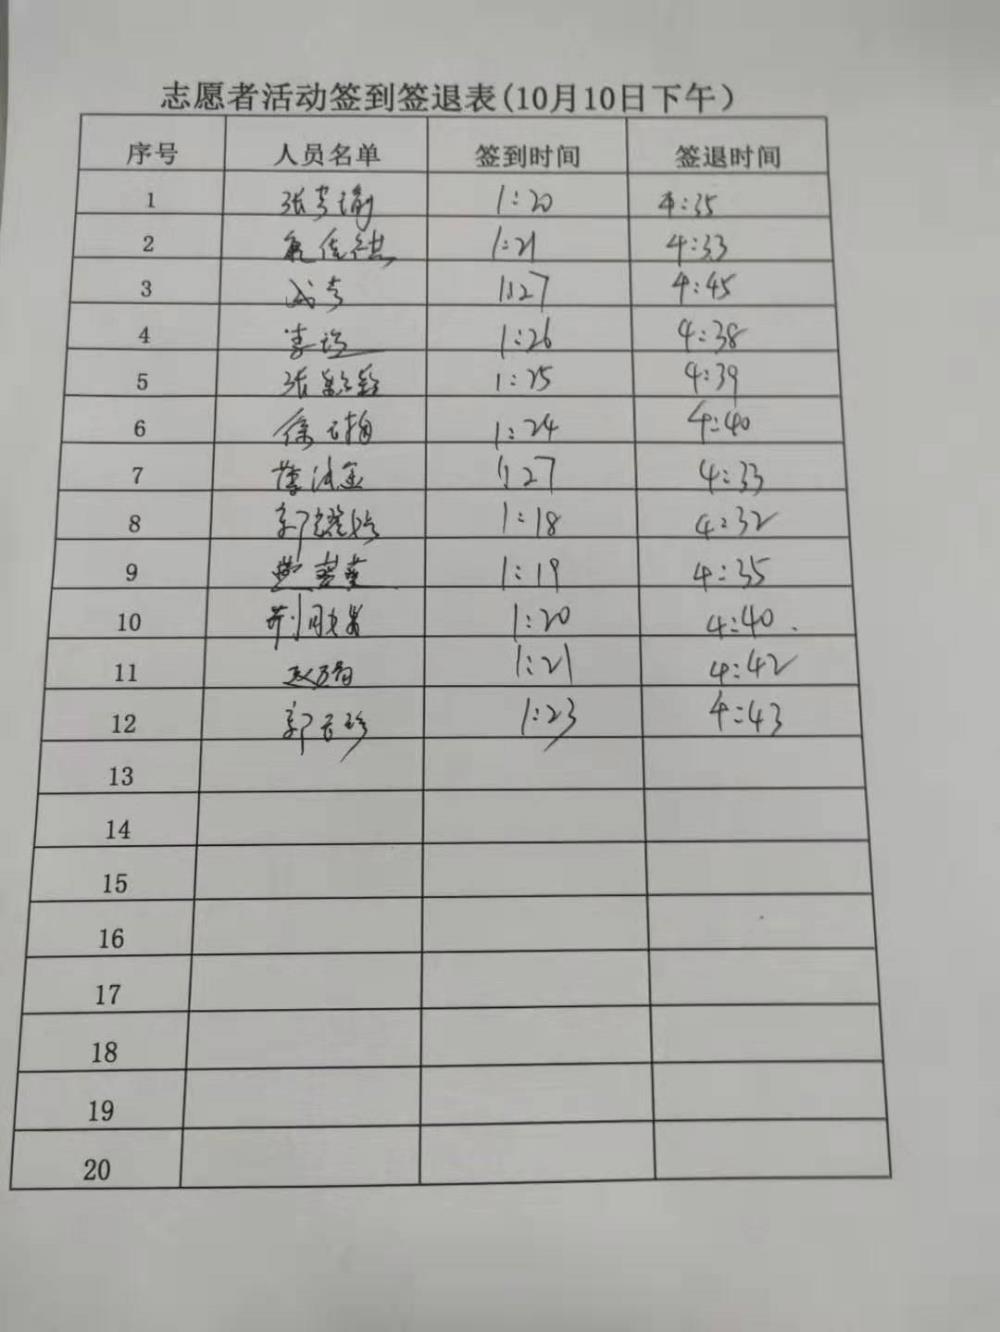 志愿者活动签到签退表(10月10日下午)
序号 人员名单 签到时间 签退时间
1 张 1:20 4:35
2 1:21 4:33
3 1:27 4:45
4 李 1:26 4:38
5 张 1:25 4:39
6 徐 1:24 4:40
7 1:27 4:33
8 郭 1:18 4:32
9 1:19 4:35
10 荆 1:20 4:40.
11 赵 1:21 4:42
12 郭 珍 1:23 4:43
13
14
15
16
17
18
19
20